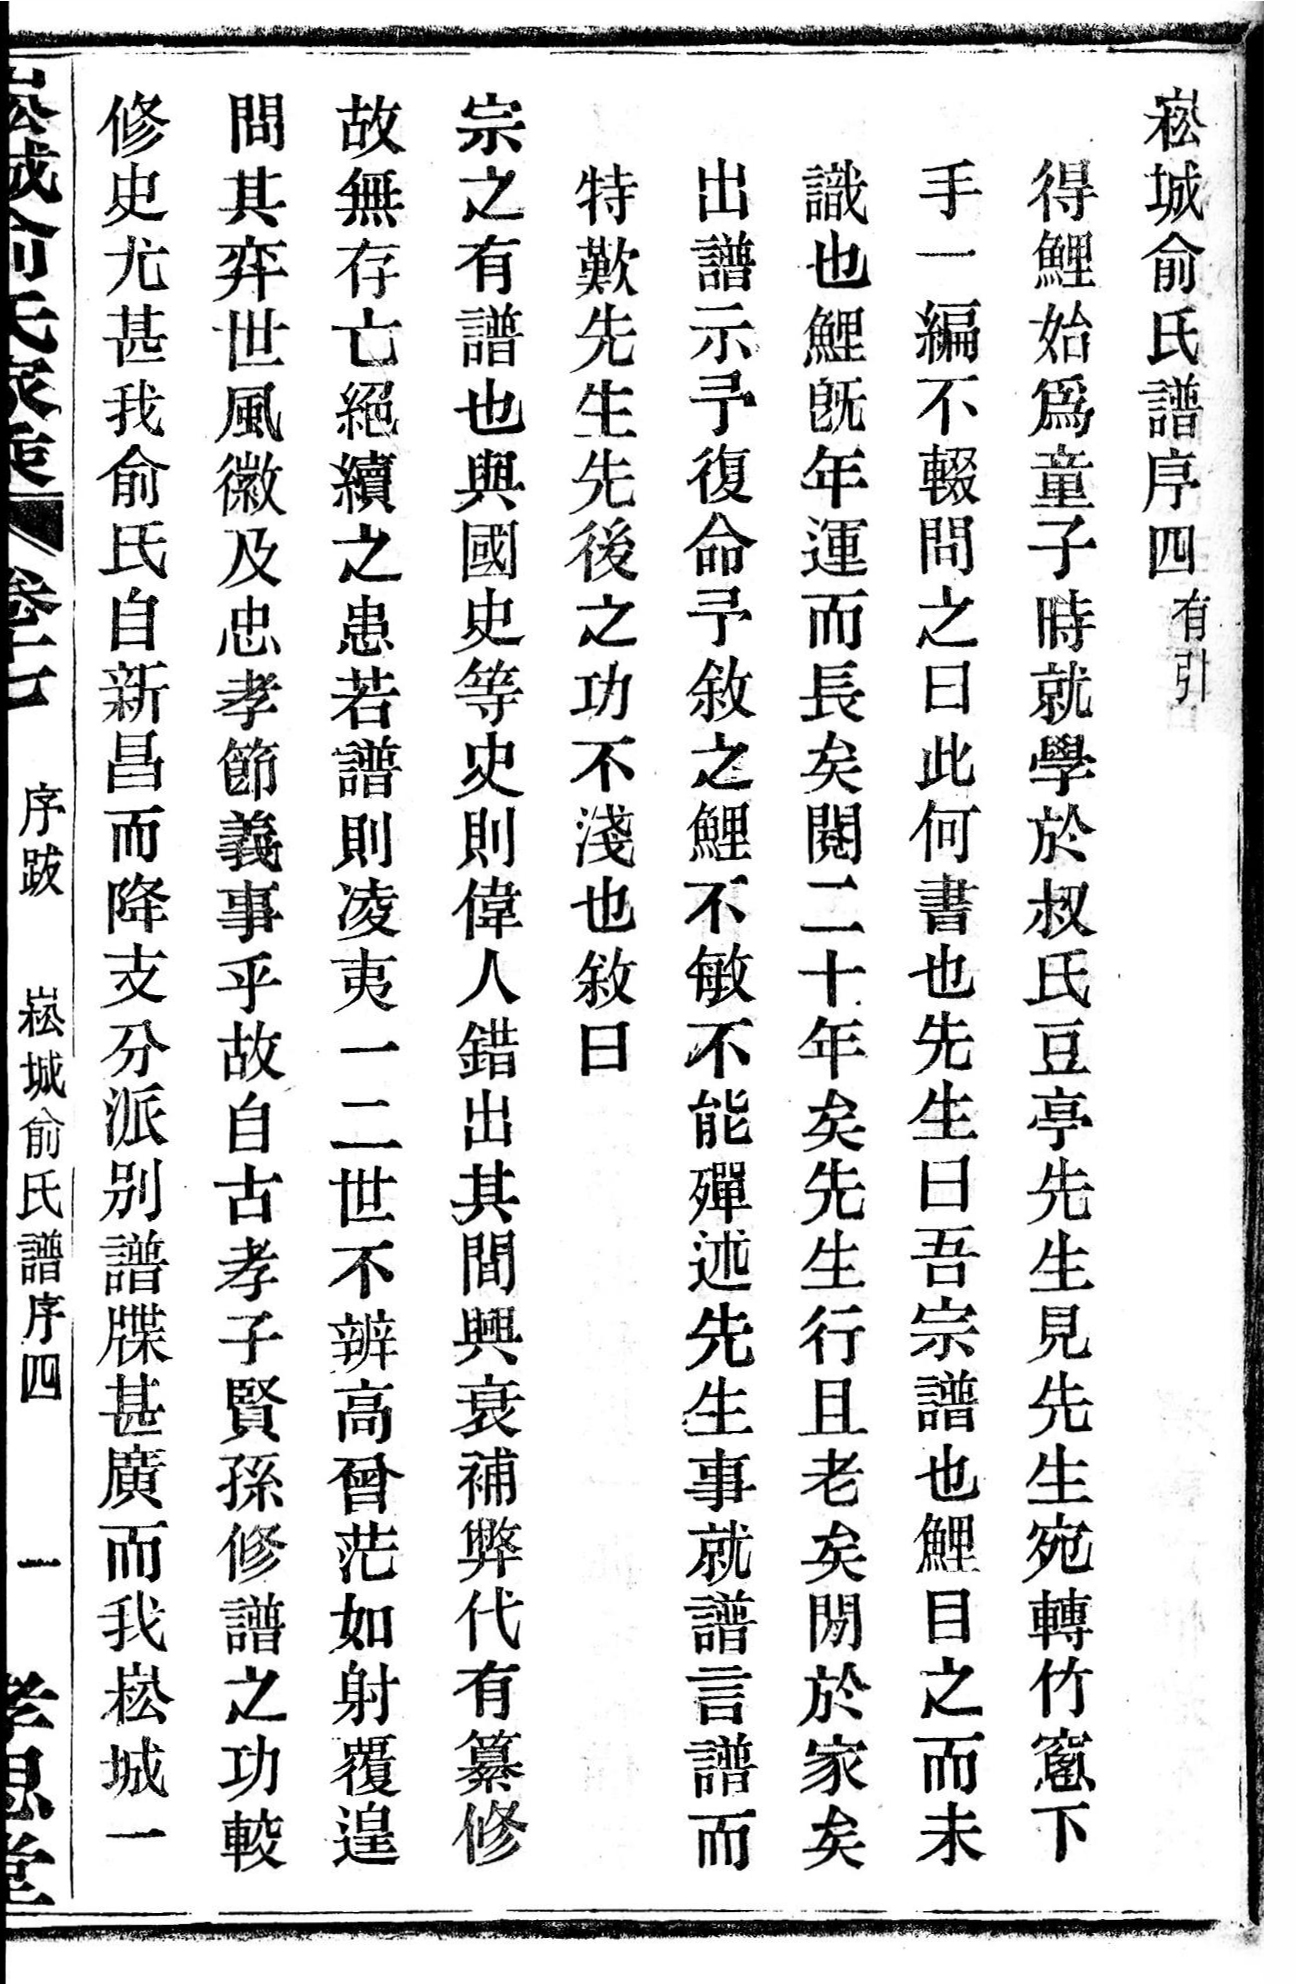 崧城俞氏譜序四有引
得鯉始爲童子時就學於叔氏豆亭先生見先生宛轉竹窻下
手一編不輟問之曰此何書也先生曰吾宗譜也鯉目之而未
識也鯉旣年運而長矣閱二十年矣先生行且老矣閒於家矣
出譜示予復命予敘之鯉不敏不能殫述先生事就譜言譜而
特歎先生先後之功不淺也敘曰
宗之有譜也與國史等史則偉人錯出其間興衰補弊代有纂修
故無存亡絕續之患若譜則凌夷一二世不辨高曾茫如射覆遑
問其弈世風徽及忠孝節義事乎故自古孝子賢孫修譜之功較
修史尤甚我俞氏自新昌而降支分派别譜牒甚廣而我崧城一
崧城俞氏家乘 卷十七 序跋 崧城俞氏譜序四 一 孝思堂